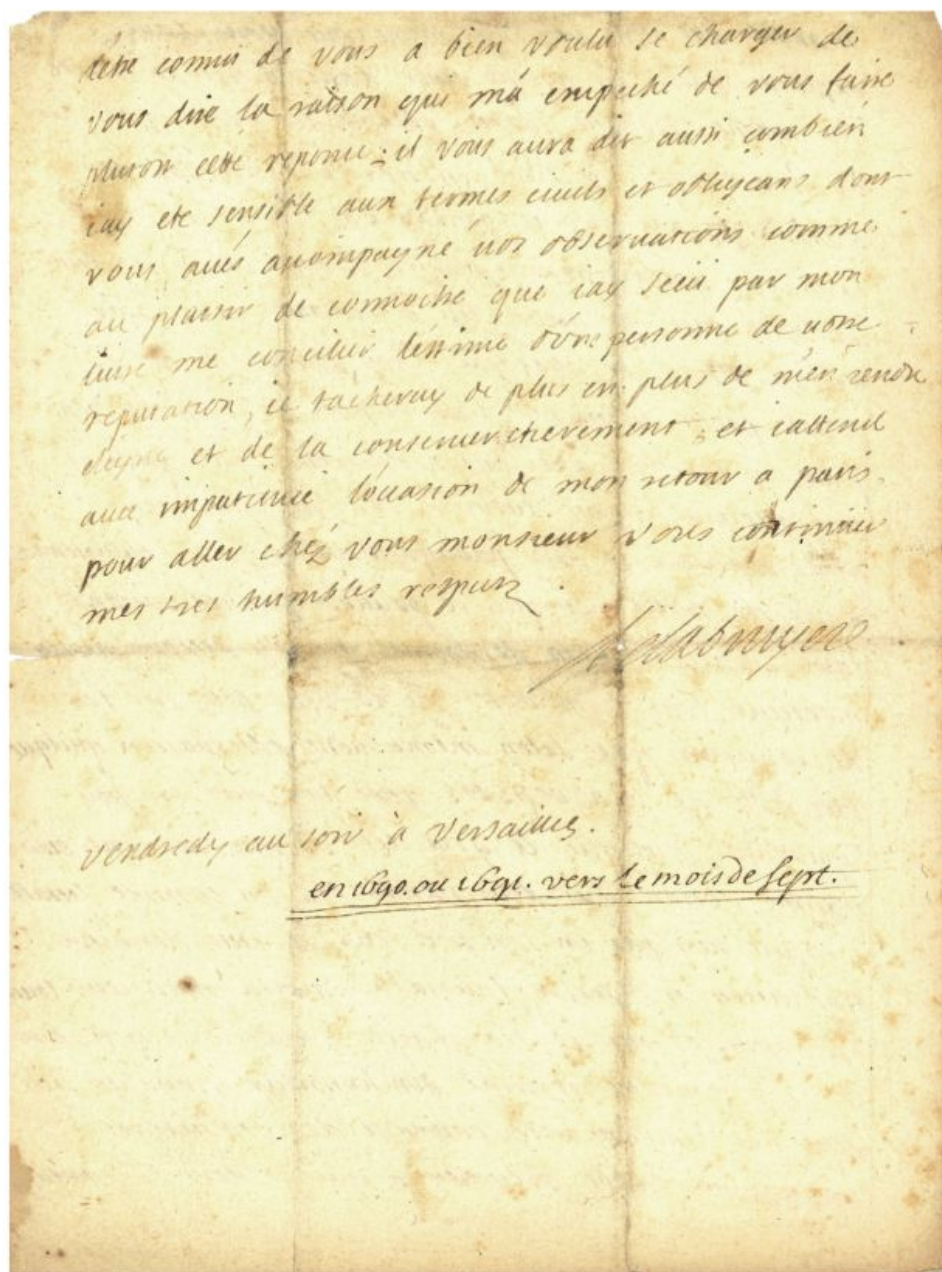 detre connu de vous a bien voulu se charger de
vous dire la raison qui m'a empeché de vous faire
plutost cette reponse; il vous aura dit aussi combien
iay eté sensible aux termes civils et obligeans dont
vous avés acompagné vos observations comme
au plaisir de connoistre que iay sceu par mon
livre me concilier l'estime d'une personne de votre
reputation, ie tacheray de plus en plus de m'en rendre
digne et de la conserver cherement, et iattend
avec impatience l'occasion de mon retour a paris
pour aller chéz vous monsieur vous continuer
mes tres humbles respects.
Delabruyere
vendredy au soir à Versailles.
en 1690. ou 1691. vers le mois de sept.